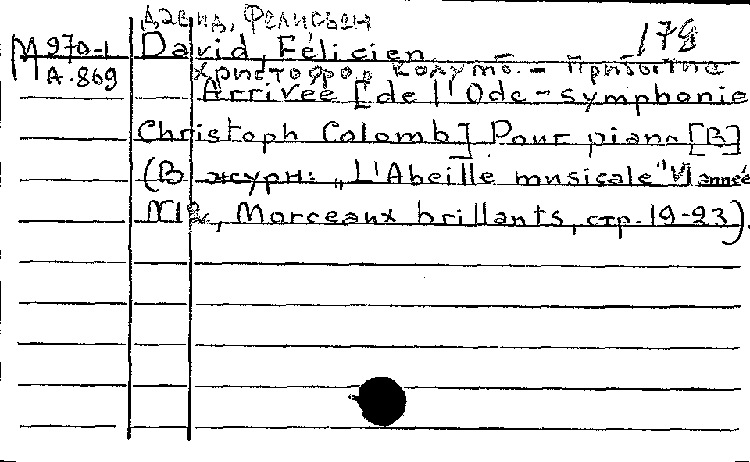 Давид, Фелисьен
179
М 970-1 David, Félicien
А.869 Христофор Колумб. - Прибытие
Arrivée [de l'Ode-symphonie
Christoph Colomb] Pour piano [В]
(В журн: „L'Abeille musicale" VI année
N12, Morceaux brillants, стр. 19-23).